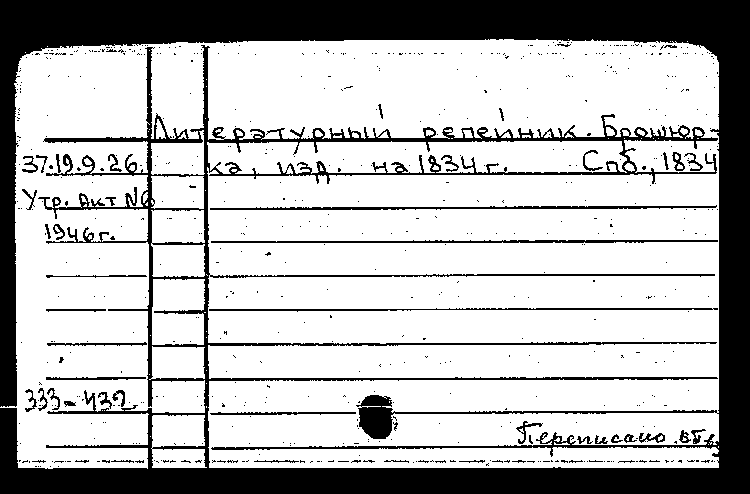 Литературный репейник. Брошюр-
37.19.9.26. ка, изд. на 1834 г. Спб., 1834
Утр. Акт №6
1946 г.
333-432
Переписано